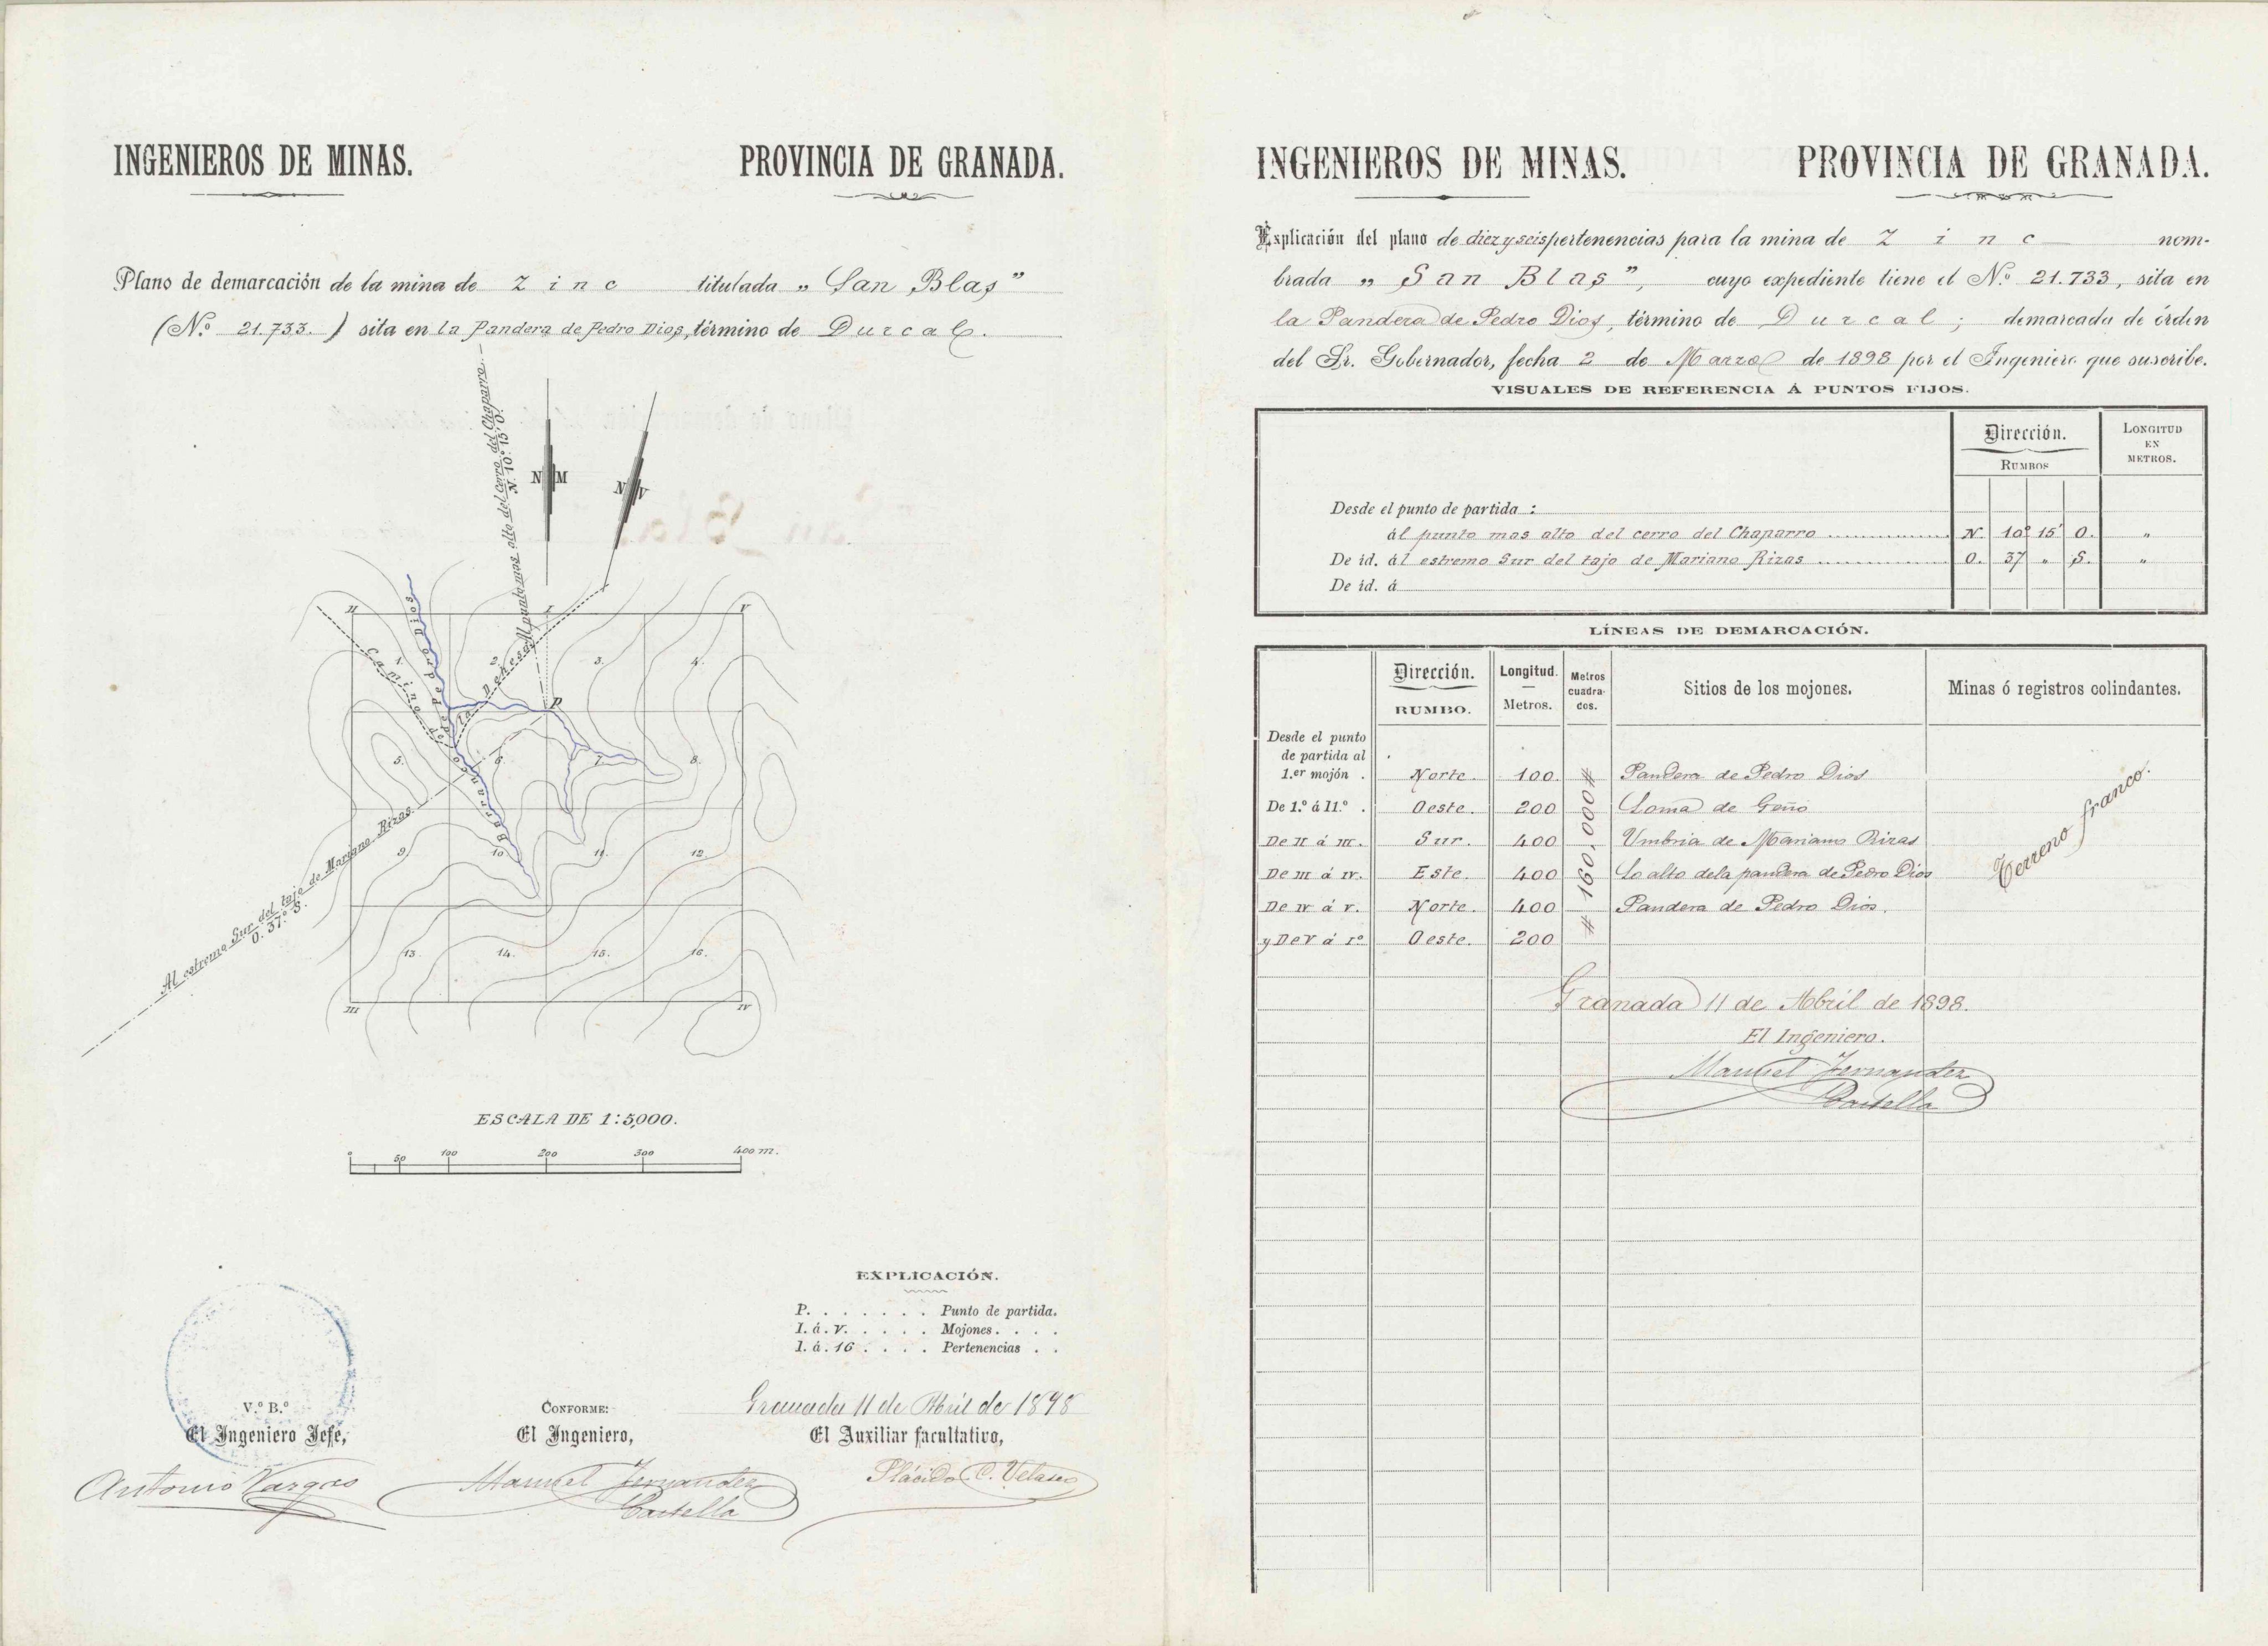 INGENIEROS DE MINAS. PROVINCIA DE GRANADA.
Plano de demarcación de la mina de Zinc titulada „ San Blas ”
(N.º 21.733.) sita en la Pandera de Pedro Dios, término de Durcal.
Al punto mas alto del Cerro del Chaparro.
N. 10.º 15' O.
N M
N V
II
I
V
Camino de
Barranco de Pedro Dios
la Dehesa
P
1.
2.
3.
4.
5.
6.
7.
8.
9
10
11.
12.
13.
14.
15.
16.
III
IV
Al estremo Sur del tajo de Mariano Rizas.
O. 37.º S.
ESCALA DE 1:5,000.
0 50 100 200 300 400 m.
EXPLICACIÓN.
P. . . . . . . . Punto de partida.
I. á. V. . . . . Mojones. . . .
1. á. 16 . . . . Pertenencias . .
Granada 11 de Abril de 1898
V.º B.º
El Ingeniero Jefe,
CONFORME:
El Ingeniero,
El Auxiliar facultativo,
Antonio Vargas
Manuel Fernandez
Castella
Plácido C. Velasco
INGENIEROS DE MINAS. PROVINCIA DE GRANADA.
Explicación del plano de diez y seis pertenencias para la mina de Zinc nom-
brada „ San Blas ”, cuyo expediente tiene el N.º 21.733, sita en
la Pandera de Pedro Dios, término de Durcal; demarcada de órden
del Sr. Gobernador, fecha 2 de Marzo de 1898 por el Ingeniero que suscribe.
VISUALES DE REFERENCIA Á PUNTOS FIJOS.
Dirección.
RUMBOS
LONGITUD
EN
METROS.
Desde el punto de partida :
ál punto mas alto del cerro del Chaparro N. 10º 15' O. „
De id. ál estremo Sur del tajo de Mariano Rizas O. 37 „ S. „
De id. á
LÍNEAS DE DEMARCACIÓN.
Dirección.
RUMBO.
Longitud.
Metros.
Metros
cuadra-
dos.
Sitios de los mojones.
Minas ó registros colindantes.
Desde el punto
de partida al
1.er mojón . Norte. 100. Pandera de Pedro Dios
De 1.º á II.º . Oeste. 200 Loma de Goño
De II á III. Sur. 400 Umbria de Mariano Rizas
De III á IV. Este. 400 Lo alto de la pandera de Pedro Dios
De IV á V. Norte. 400 Pandera de Pedro Dios.
y De V á Iº Oeste. 200
# 160,000 #
Terreno franco.
Granada 11 de Abril de 1898.
El Ingeniero.
Manuel Fernandez
Castella